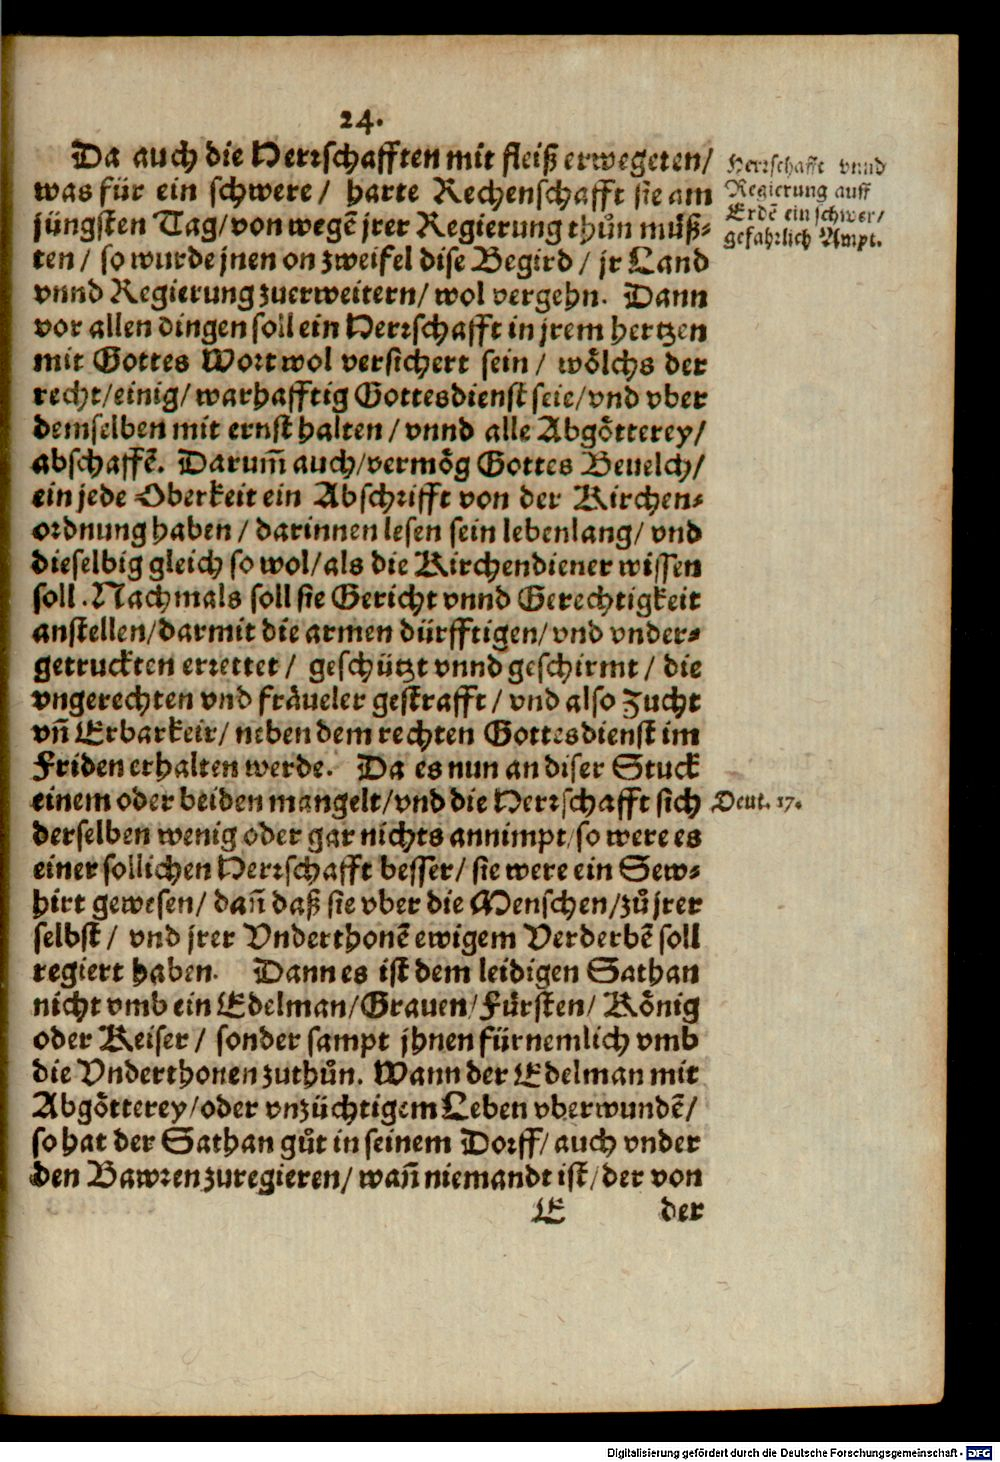 24.
Da auch die Herrschafften mit fleiß erwegeten/
was für ein schwere/ harte Rechenschafft sie am
jüngsten Tag/von wegẽ jrer Regierung thůn müß-
ten/ so wurde jnen on zweifel dise Begird/ jr Land
vnnd Regierung zuerweitern/ wol vergehn. Dann
vor allen dingen soll ein Herrschafft in jrem hertzen
mit Gottes Wort wol versichert sein/ wölchs der
recht/einig/ warhafftig Gottesdienst seie/vnd vber
demselben mit ernst halten/ vnnd alle Abgötterey/
abschaffẽ. Darum̃ auch/vermög Gottes Beuelch/
ein jede Oberkeit ein Abschrifft von der Kirchen-
ordnung haben/ darinnen lesen sein lebenlang/ vnd
dieselbig gleich so wol/als die Kirchendiener wissen
soll. Nachmals soll sie Gericht vnnd Gerechtigkeit
anstellen/darmit die armen dürfftigen/ vnd vnder-
getruckten errettet/ geschützt vnnd geschirmt/ die
vngerechten vnd fräueler gestrafft/ vnd also Zucht
vñ Erbarkeit/ neben dem rechten Gottesdienst im
Friden erhalten werde. Da es nun an diser Stuck
einem oder beiden mangelt/vnd die Herrschafft sich
derselben wenig oder gar nichts annimpt/so were es
einer sollichen Herrschafft besser/ sie were ein Sew-
hirt gewesen/ dañ daß sie vber die Menschen/zů jrer
selbst/ vnd jrer Vnderthonẽ ewigem Verderbẽ soll
regiert haben. Dann es ist dem leidigen Sathan
nicht vmb ein Edelman/Grauen/Fürsten/ König
oder Keiser/ sonder sampt jhnen fürnemlich vmb
die Vnderthonen zuthůn. Wann der Edelman mit
Abgötterey/oder vnzüchtigem Leben vberwundẽ/
so hat der Sathan gůt in seinem Dorff/ auch vnder
den Bawren zuregieren/ wañ niemandt ist/der von
E der
Herrschafft vnnd
Regierung auff
Erdẽ ein schwer/
gefahrlich Ampt.
Deut. 17.
Digitalisierung gefördert durch die Deutsche Forschungsgemeinschaft - DFG